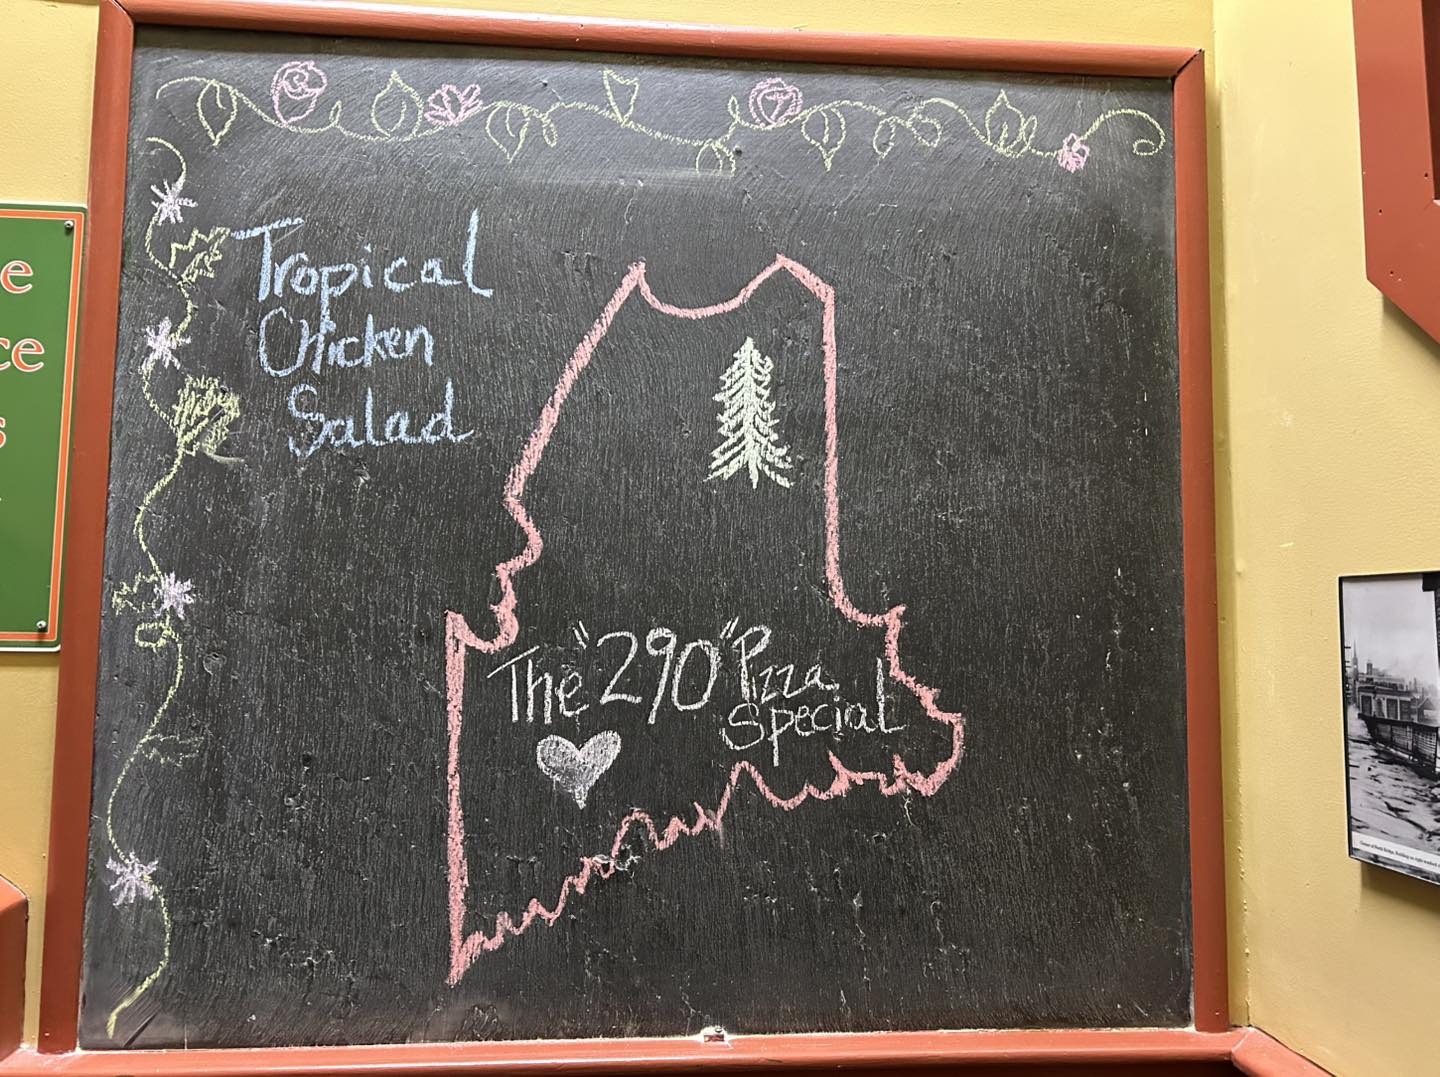 Tropical
Chicken
Salad
The "290" Pizza
Special
e
ce
s